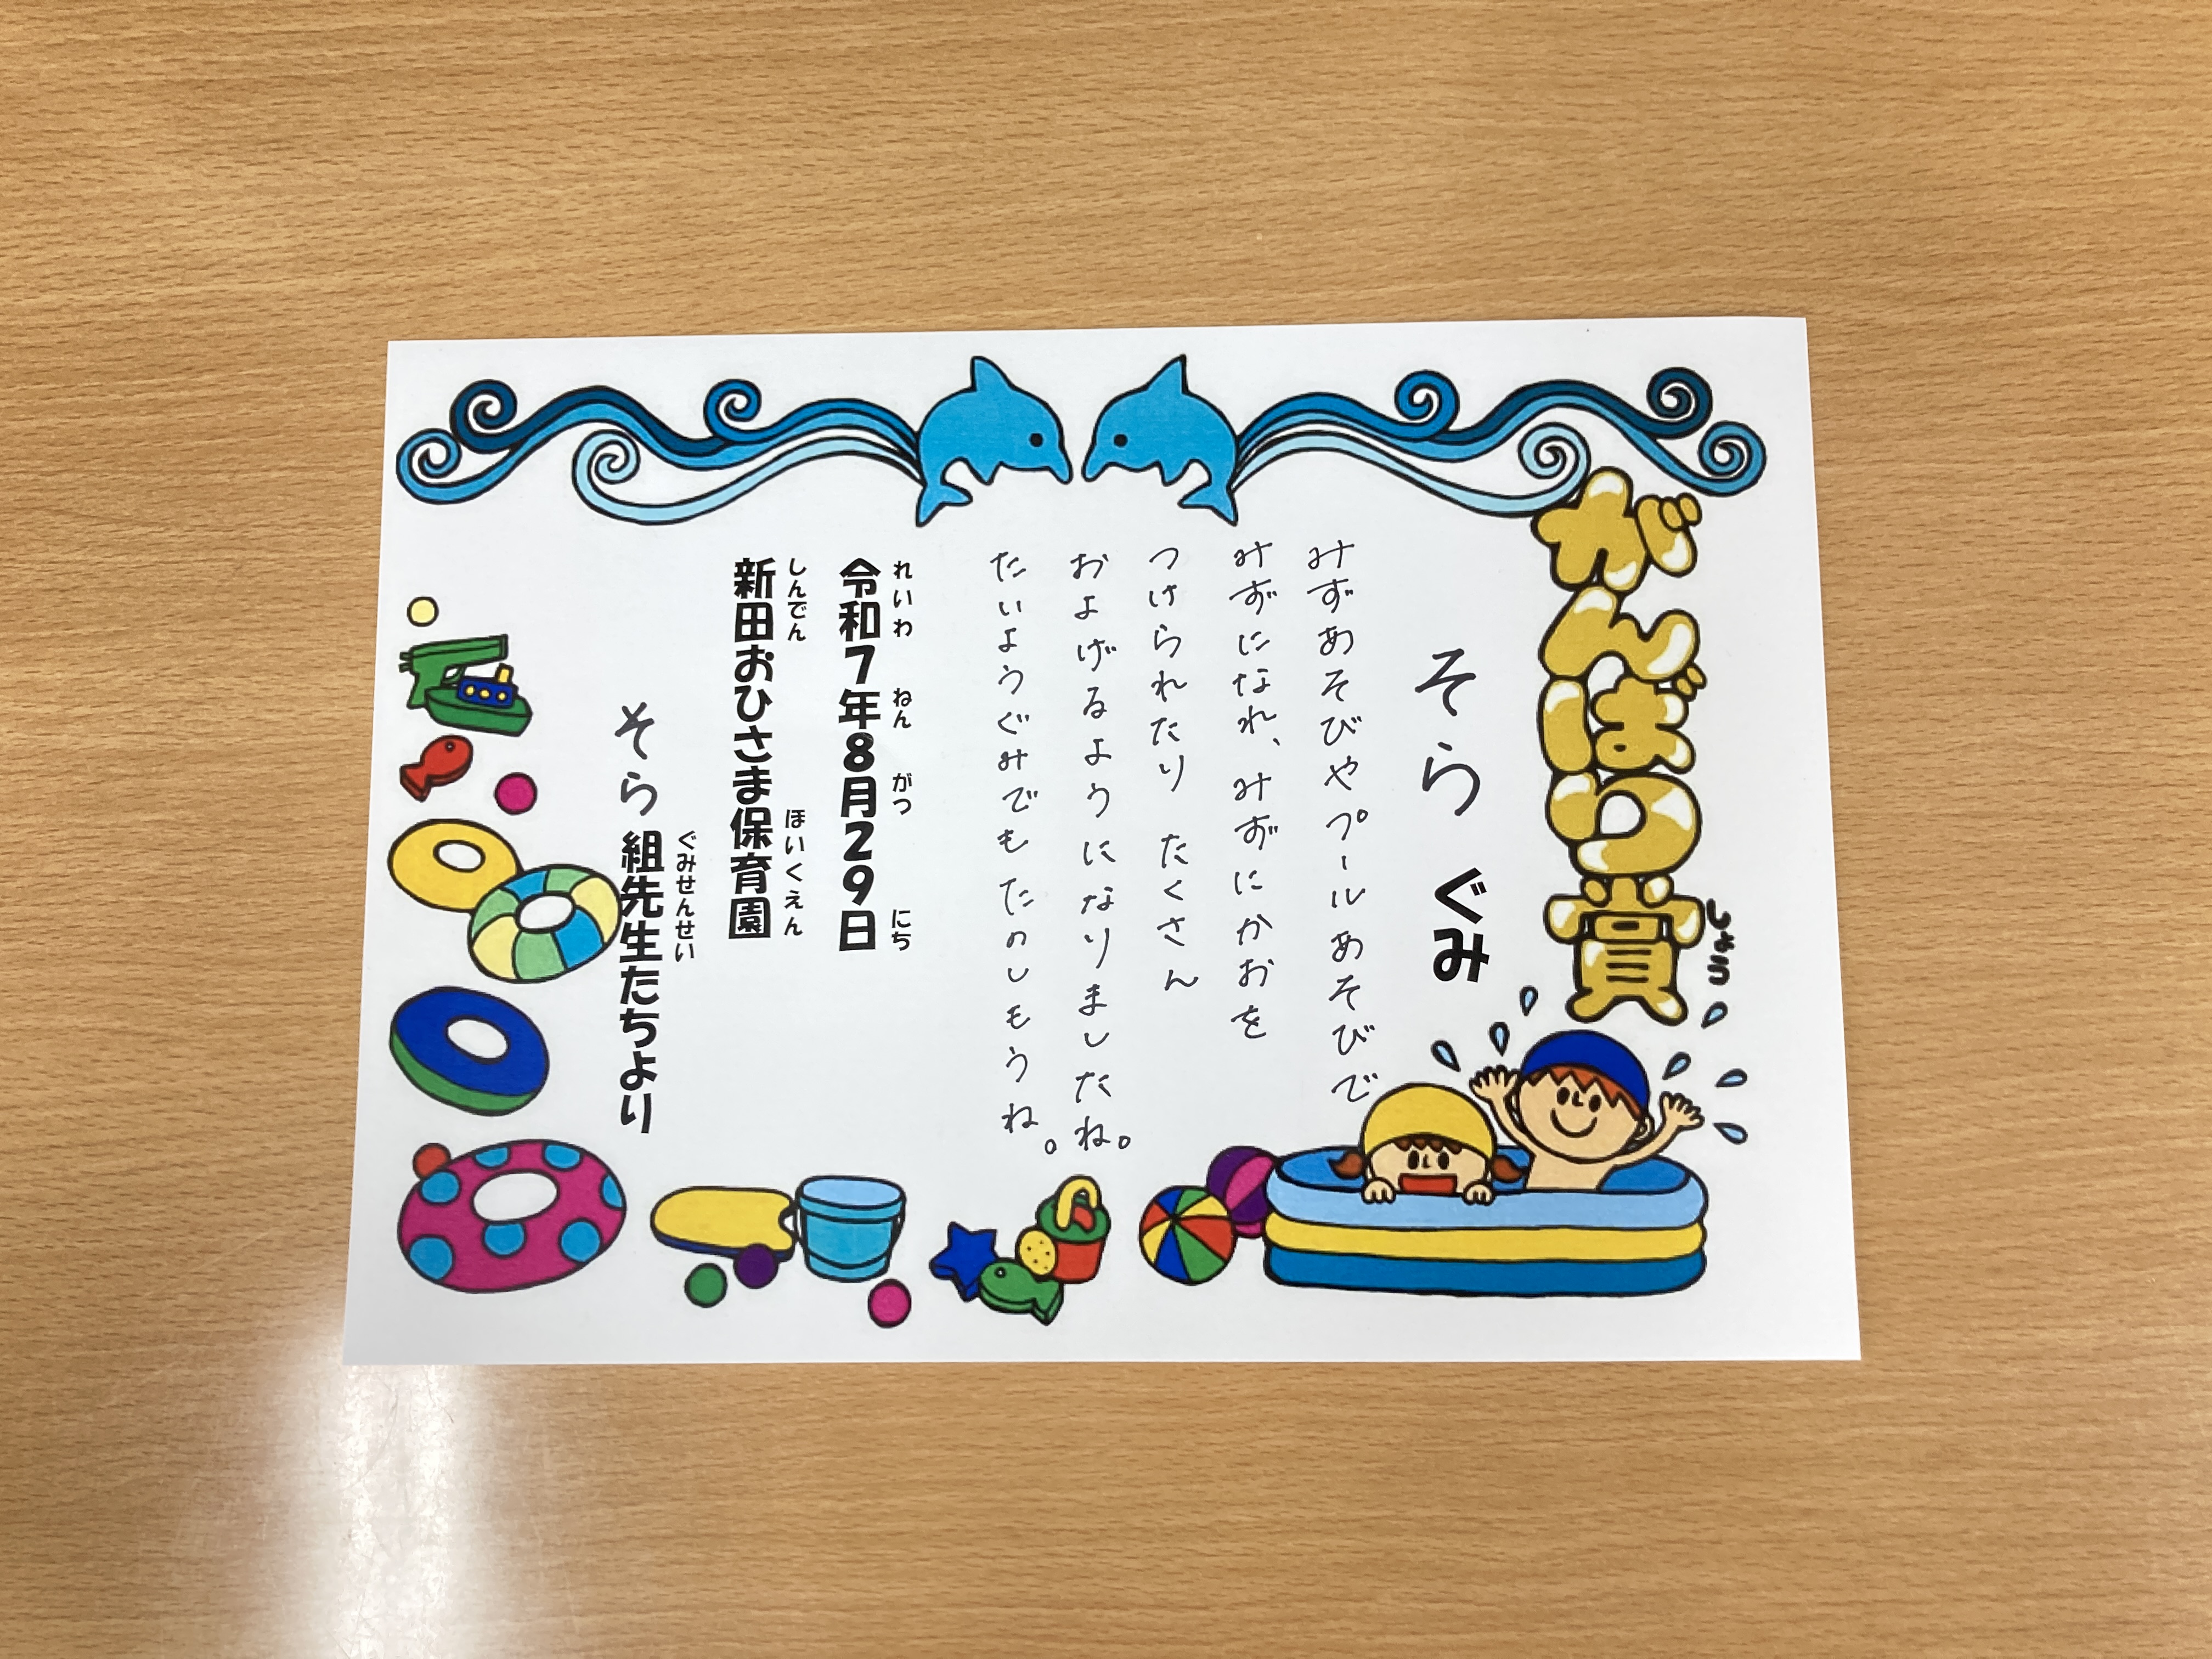 がんばり賞
しょう
そら ぐみ
みずあそびやプールあそびで
みずになれ、みずにかおを
つけられたり たくさん
およげるようになりましたね。
たいようぐみでもたのしもうね。
れいわ ねん がつ にち
令和7年8月29日
しんでん ほいくえん
新田おひさま保育園
ぐみせんせい
そら組先生たちより